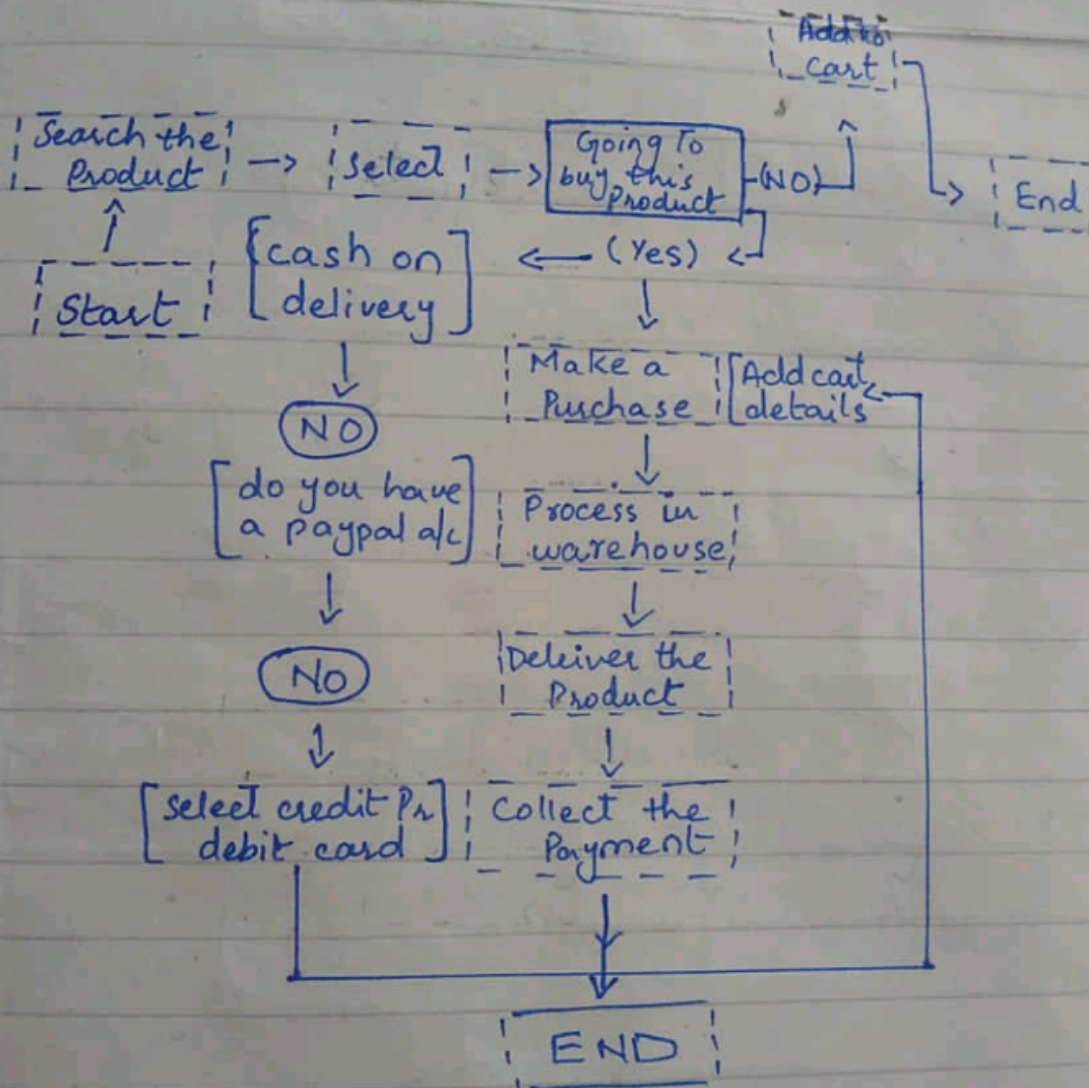 Add to
cart
Search the
Product
Select
Going To
buy this
Product
(NO)
End
Start
cash on
delivery
(Yes)
Make a
Purchase
Add cart
details
NO
do you have
a paypal a/c
Process in
warehouse
NO
Deleiver the
Product
select credit Pr
debit card
Collect the
Payment
END